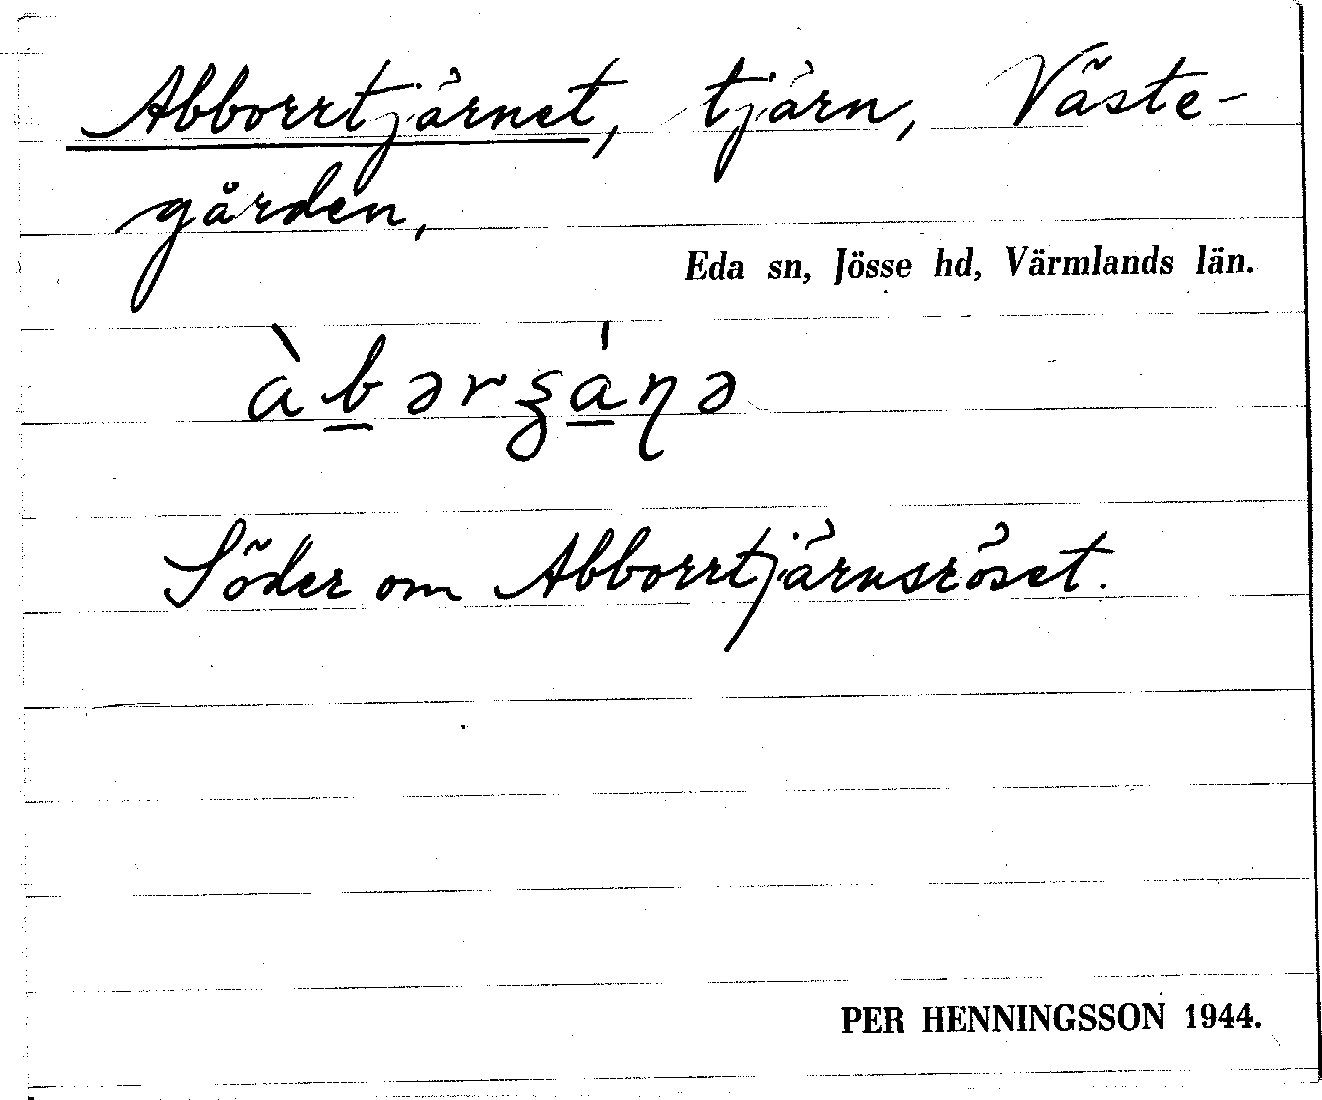 Abborrtjärnet, tjärn, Väste-
gården,
Eda sn, Jösse hd, Värmlands län.
àb̲ərʒá̲ɳə
Söder om Abborrtjärnsröset.
PER HENNINGSSON 1944.